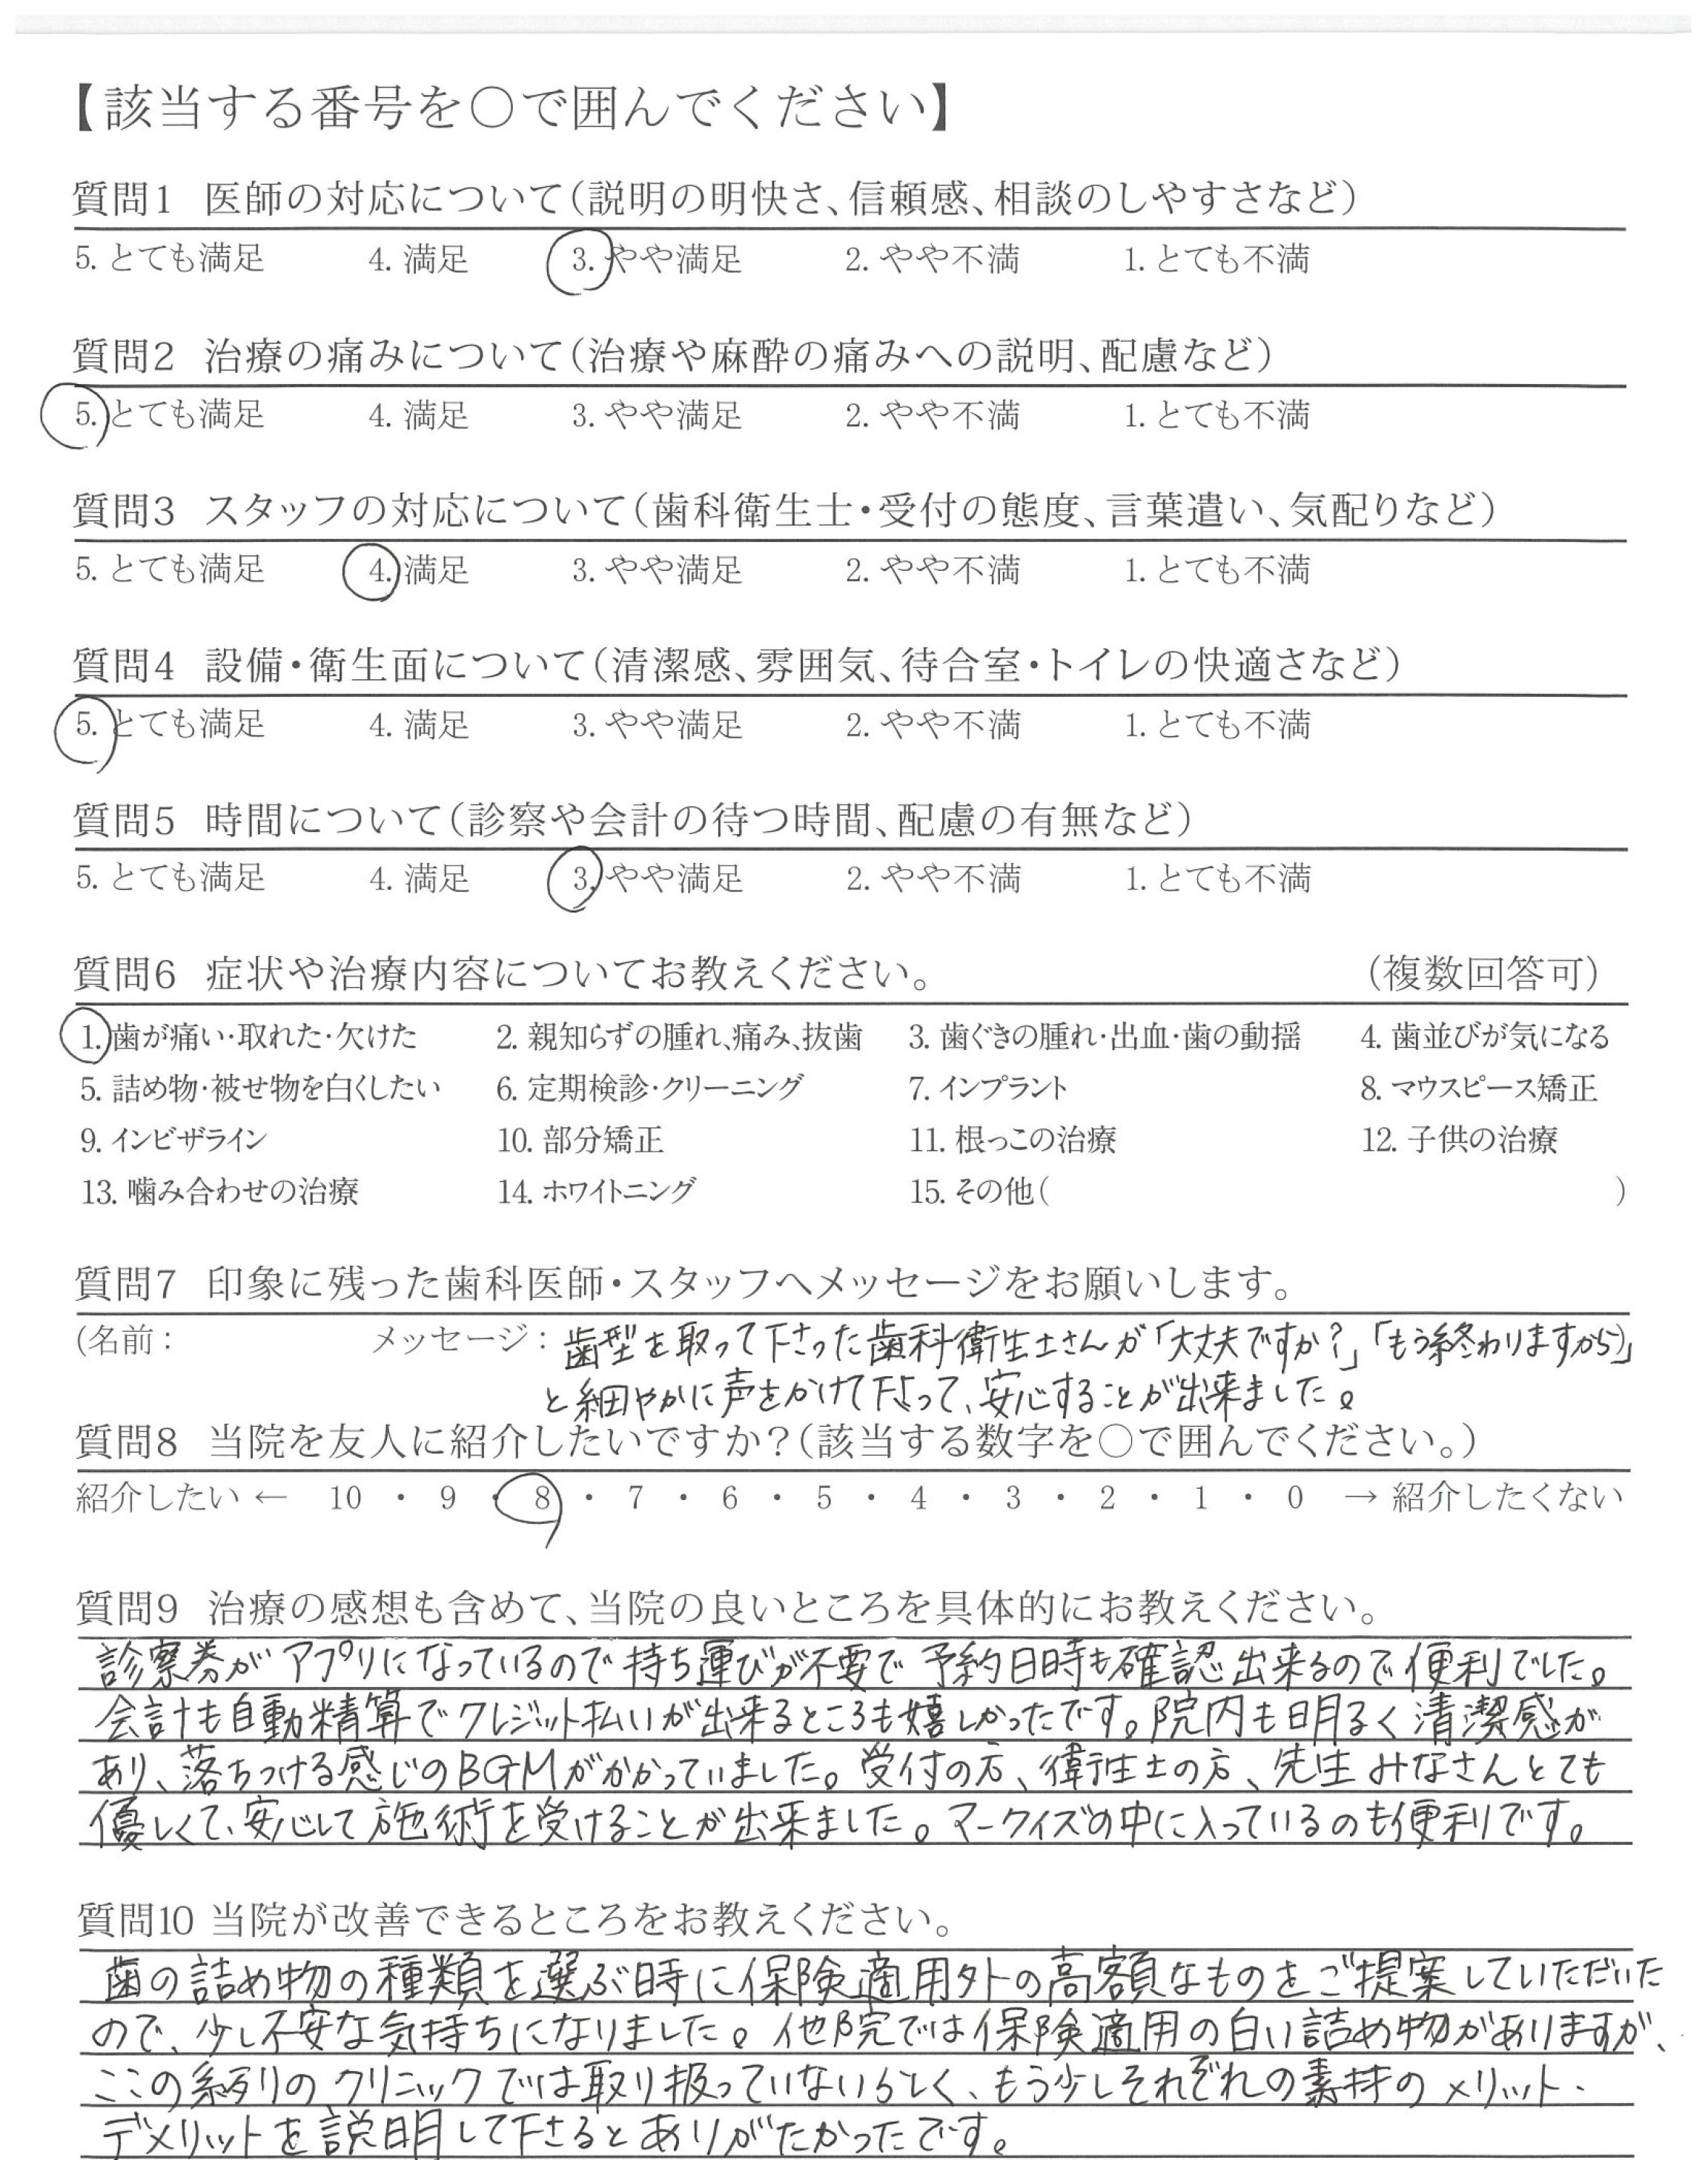 【該当する番号を○で囲んでください】
質問1 医師の対応について(説明の明快さ、信頼感、相談のしやすさなど)
5. とても満足 4. 満足 3. やや満足 2. やや不満 1. とても不満
質問2 治療の痛みについて(治療や麻酔の痛みへの説明、配慮など)
5. とても満足 4. 満足 3. やや満足 2. やや不満 1. とても不満
質問3 スタッフの対応について(歯科衛生士・受付の態度、言葉遣い、気配りなど)
5. とても満足 4. 満足 3. やや満足 2. やや不満 1. とても不満
質問4 設備・衛生面について(清潔感、雰囲気、待合室・トイレの快適さなど)
5. とても満足 4. 満足 3. やや満足 2. やや不満 1. とても不満
質問5 時間について(診察や会計の待つ時間、配慮の有無など)
5. とても満足 4. 満足 3. やや満足 2. やや不満 1. とても不満
質問6 症状や治療内容についてお教えください。 (複数回答可)
1. 歯が痛い・取れた・欠けた 2. 親知らずの腫れ、痛み、抜歯 3. 歯ぐきの腫れ・出血・歯の動揺 4. 歯並びが気になる
5. 詰め物・被せ物を白くしたい 6. 定期検診・クリーニング 7. インプラント 8. マウスピース矯正
9. インビザライン 10. 部分矯正 11. 根っこの治療 12. 子供の治療
13. 噛み合わせの治療 14. ホワイトニング 15. その他( )
質問7 印象に残った歯科医師・スタッフへメッセージをお願いします。
(名前: メッセージ: 歯型を取って下さった歯科衛生士さんが「大丈夫ですか?」「もう終わりますから」)
と細やかに声をかけて下さって、安心することが出来ました。
質問8 当院を友人に紹介したいですか?(該当する数字を○で囲んでください。)
紹介したい ← 10 ・ 9 ・ 8 ・ 7 ・ 6 ・ 5 ・ 4 ・ 3 ・ 2 ・ 1 ・ 0 → 紹介したくない
質問9 治療の感想も含めて、当院の良いところを具体的にお教えください。
診察券がアプリになっているので持ち運びが不要で予約日時も確認出来るので便利でした。
会計も自動精算でクレジット払いが出来るところも嬉しかったです。院内も明るく清潔感が
あり、落ちつける感じのBGMがかかっていました。受付の方、衛生士の方、先生みなさんとても
優しくて、安心して施術を受けることが出来ました。マークイズの中に入っているのも便利です。
質問10 当院が改善できるところをお教えください。
歯の詰め物の種類を選ぶ時に保険適用外の高額なものをご提案していただいた
ので、少し不安な気持ちになりました。他院では保険適用の白い詰め物がありますが、
ここの系列のクリニックでは取り扱っていないらしく、もう少しそれぞれの素材のメリット・
デメリットを説明して下さるとありがたかったです。